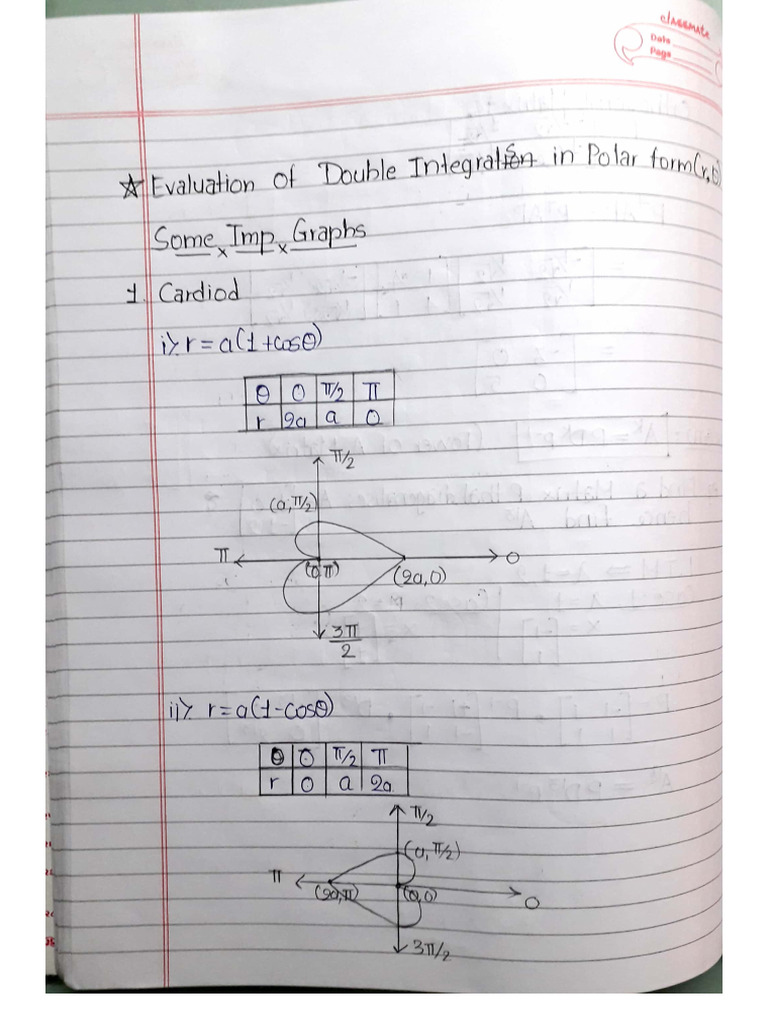 classmate
Date
Page
☆ Evaluation of Double Integrals in Polar form(r,θ)
Some × Imp × Graphs
1. Cardiod
i) r = a(1+cosθ)
θ 0 π/2 π
r 2a a 0
π/2
(a,π/2)
π 0
(0,π) (2a,0)
3π/2
ii) r = a(1-cosθ)
θ 0 π/2 π
r 0 a 2a
π/2
(a,π/2)
π
(2a,π) (0,0) 0
3π/2